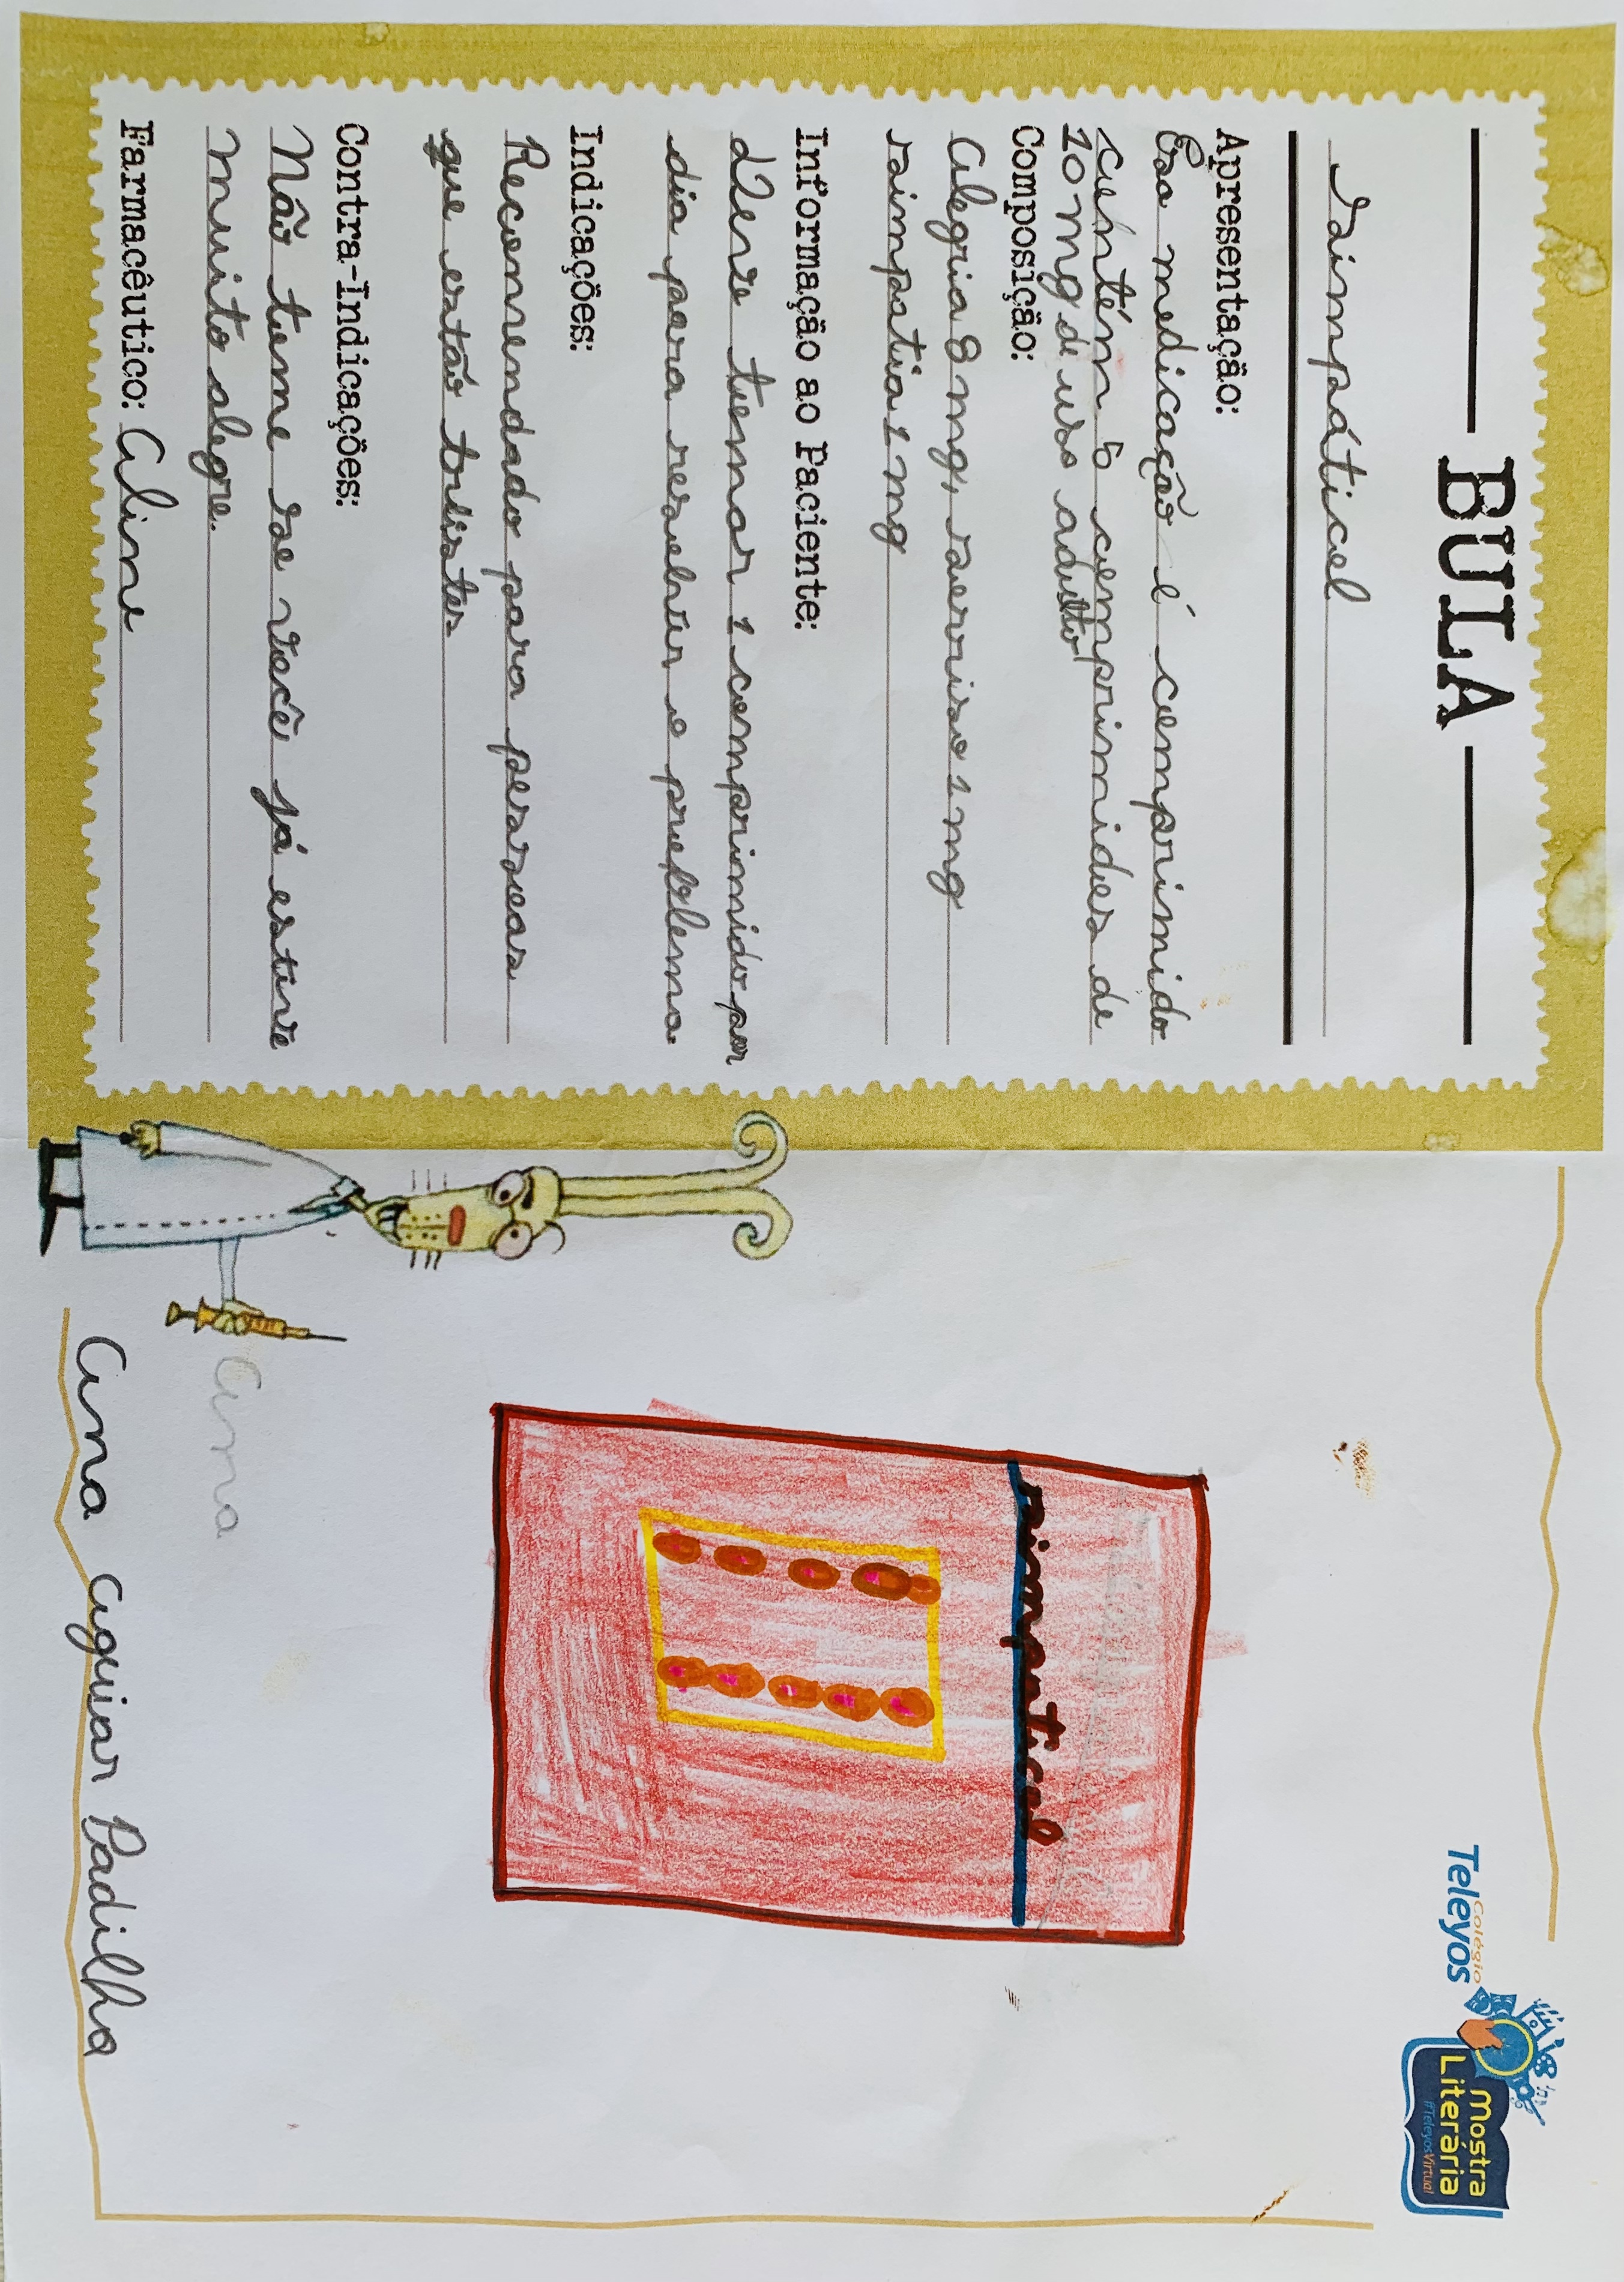 BULA
simpáticol
Apresentação:
Esa medicação é comprimido
contém 5 comprimidos de
10 mg de uso adulto
Composição:
Alegria 8 mg, sorriso 1 mg
simpatia 1 mg
Informação ao Paciente:
Deve tomar 1 comprimido por
dia para resolver o problema
Indicações:
Recomendado para pessoas
que estão tristes
Contra-Indicações:
Não tome se você já estive
muito alegre.
Farmacêutico: Aline
Colégio
Teleyos
Mostra
Literária
#TeleyosVirtual
simpaticol
Ana
Ana Aguiar Padilha